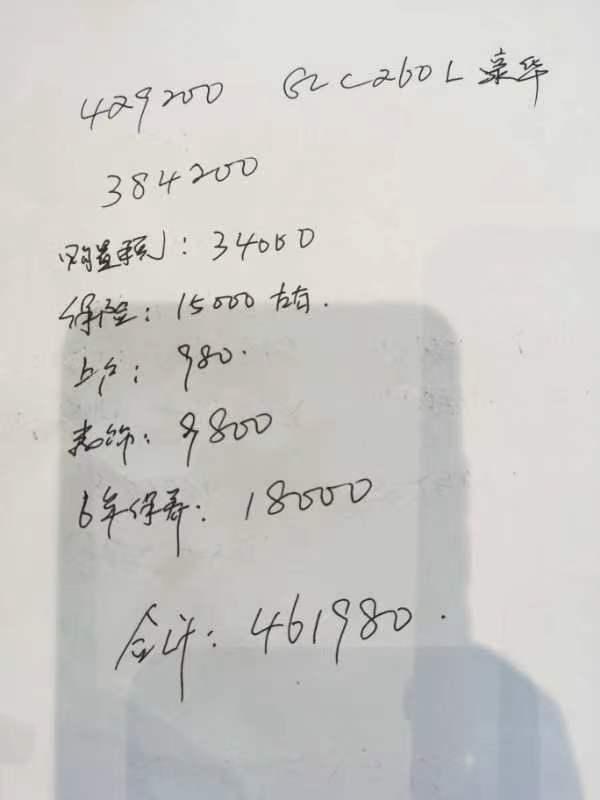 429200 GLC260L豪华
384200
购置税: 34000
保险: 15000左右.
上户: 980.
装饰: 9800
6年保养: 18000
合计: 461980.